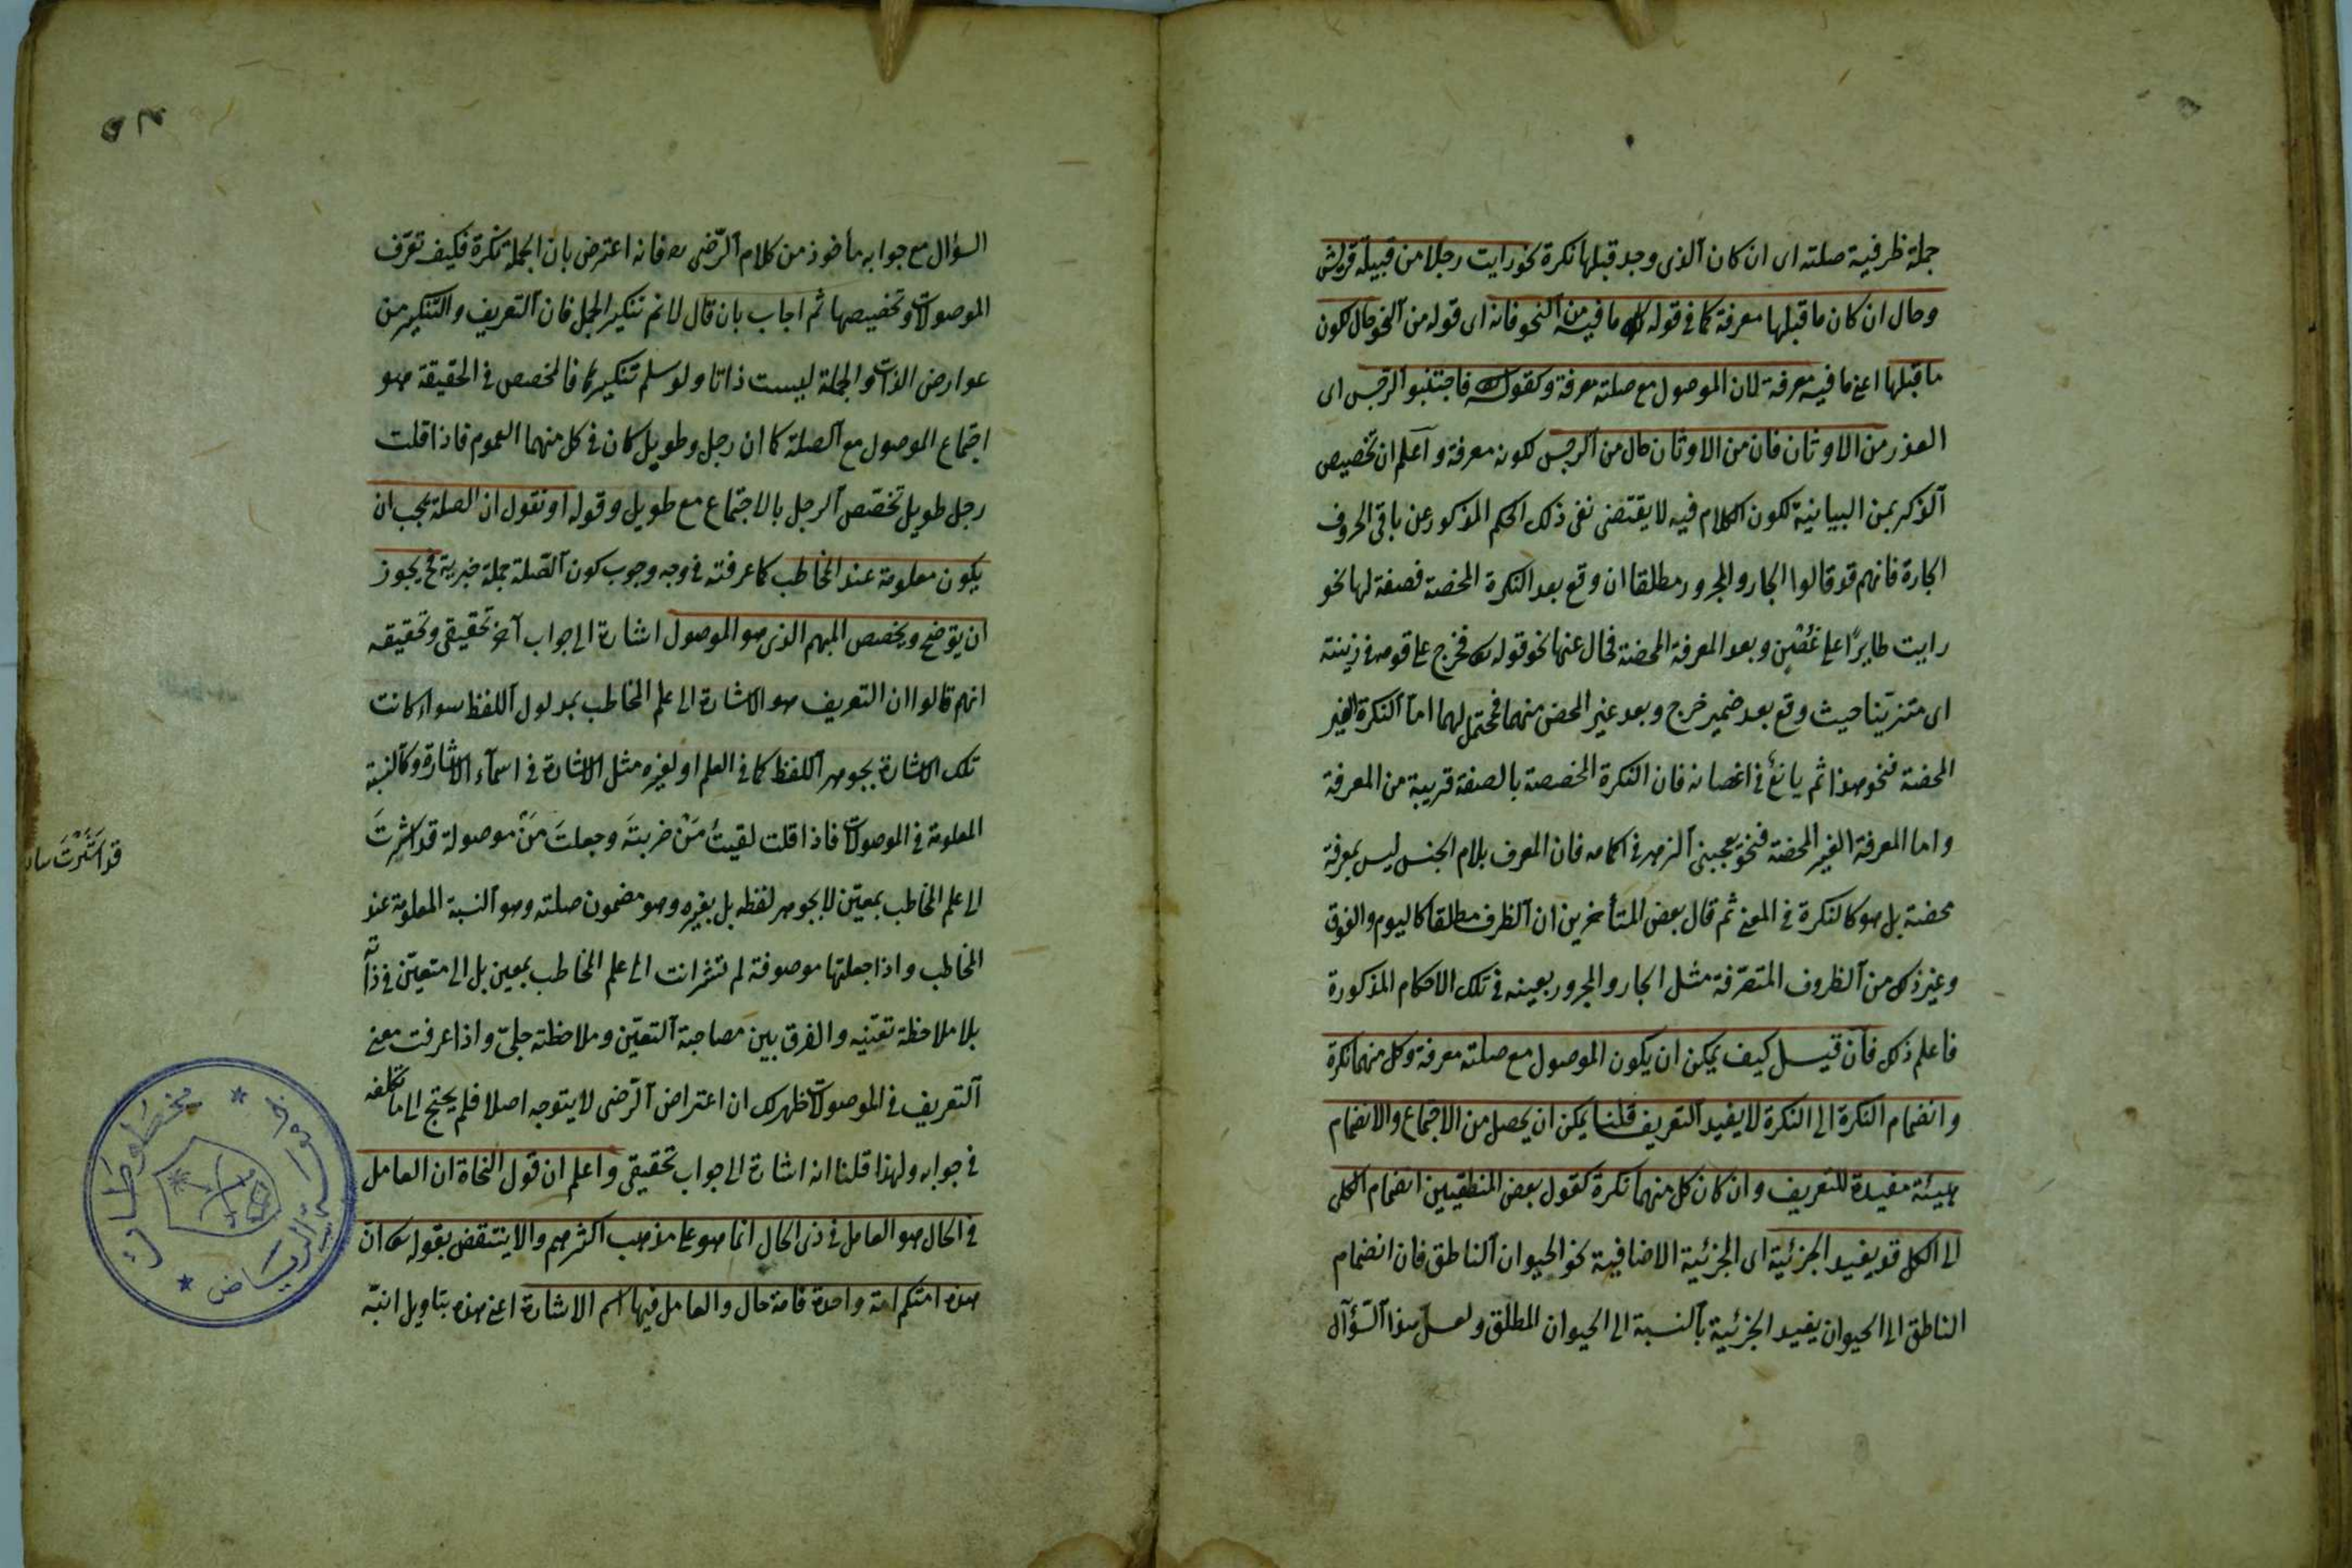 جملة ظرفية صلته اى ان كان الذى وجد قبلها نكرة نحو رايت رجلا من قبيلة قريش
وحال ان كان ما قبلها معرفة كما فى قوله لك ما فيه من النحو فانه اى قوله من النحو حال لكون
ما قبلها اعنى ما فيه معرفة لان الموصول مع صلته معرفة وكقوله فاجتنبوا الرجس اى
القذر من الاوثان فان من الاوثان حال من الرجس لكونه معرفة واعلم ان تخصيص
الذكر بمن البيانية لكون الكلام فيه لا يقتضى نفى ذلك الحكم المذكور عن باقى الحروف
الجارة فانهم قد قالوا الجار والمجرور مطلقا ان وقع بعد النكرة المحضة فصفة لها نحو
رايت طايرًا على غُصْنٍ وبعد المعرفة المحضة فحال عنها نحو قوله فخرج على قومه فى زينته
اى متزينا حيث وقع بعد ضمير خرج وبعد غير المحض منهما فمحتمل لهما اما النكرة الغير
المحضة فنحو هذا ثمر يانعٌ فى اغصانه فان النكرة المخصصة بالصفة قريبة من المعرفة
واما المعرفة الغير المحضة فنحو يعجبنى الزهر فى اكمامه فان المعرف بلام الجنس ليس بمعرفة
محضة بل هو كالنكرة فى المعنى ثم قال بعض المتأخرين ان الظرف مطلقا كاليوم والفوق
وغير ذلك من الظروف المتصرّفة مثل الجار والمجرور بعينه فى تلك الاحكام المذكورة
فاعلم ذلك فان قيل كيف يمكن ان يكون الموصول مع صلته معرفة وكل منهما نكرة
وانضمام النكرة الى النكرة لا يفيد التعريف قلنا يمكن ان يحصل من الاجتماع والانضمام
هيئة مفيدة للتعريف وان كان كل منهما نكرة كقول بعض المنطقيين انضمام الكلى
الى الكل قد يفيد الجزئية اى الجزئية الاضافية نحو الحيوان الناطق فان انضمام
الناطق الى الحيوان يفيد الجزئية بالنسبة الى الحيوان المطلق ولعل هذا السؤال
السؤال مع جوابه مأخوذ من كلام الرّضى فانه اعترض بان الجملة نكرة فكيف تعرّف
الموصولات وتخصيصها ثم اجاب بان قال لا نم تنكير الجمل فان التعريف والتنكير من
عوارض الذات والجملة ليست ذاتا ولو سلم تنكيرها فالمخصص فى الحقيقة هو
اجتماع الموصول مع الصلة كما ان رجل وطويل كان فى كل منهما العموم فاذا قلت
رجل طويل تخصّص الرجل بالاجتماع مع طويل وقوله او نقول ان الصلة يجب ان
يكون معلومة عند المخاطب كما عرفته فى وجه وجوب كون الصّلة جملة خبرية فح يجوز
ان يوضح ويخصص المبهم الذى هو الموصول اشارة الى جواب آخر تحقيقى وتحقيقه
انهم قالوا ان التعريف هو الاشارة الى علم المخاطب بمدلول اللفظ سواء كانت
تلك الاشارة بجوهر اللفظ كما فى العلم او لغيره مثل الاشارة فى اسمآء الاشارة وكالنسبة
المعلومة فى الموصولات فاذا قلت لقيتُ مَنْ ضربتَه وجعلتَ مَنْ موصولة قد اشرتَ
الى علم المخاطب بمعيّن لا بجوهر لفظه بل بغيره وهو مضمون صلته وهو النسبة المعلومة عند
المخاطب واذا جعلتها موصوفة لم تشر انت الى علم المخاطب بمعين بل الى متعيّن فى ذاته
بلا ملاحظة تعيّنه والفرق بين مصاحبة التعيّن وملاحظته جلىّ واذا عرفت معنى
التعريف فى الموصولات ظهر لك ان اعتراض الرّضى لا يتوجه اصلا فلم يحتج الى ما تكلفه
فى جوابه ولهذا قلنا انه اشارة الى جواب تحقيقى واعلم ان قول النحاة ان العامل
فى الحال هو العامل فى ذى الحال انما هو على مذهب اكثرهم والا ينتقض بقوله انّ
هذه امتكم امة واحدة فامة حال والعامل فيها اسم الاشارة اعنى هذه بتاويل انبّه
مخطوطات
الرياض